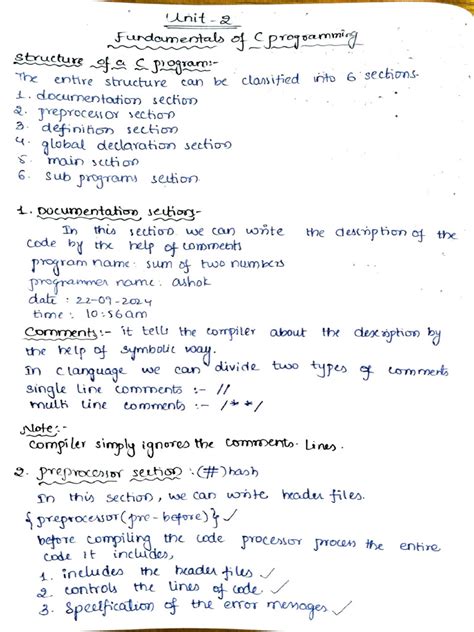 Unit - 2
Fundamentals of C programming
Structure of a C program:-
The entire structure can be classified into 6 sections.
1. documentation section
2. preprocessor section
3. definition section
4. global declaration section
5. main section
6. sub programs section
1. Documentation section:-
In this section we can write the description of the
code by the help of comments
program name: sum of two numbers
programmer name: ashok
date : 22-09-2024
time : 10:56am
Comments:- it tells the compiler about the description by
the help of symbolic way.
In C language we can divide two types of comments
single line comments :- //
multi line comments :- /**/
Note:-
Compiler simply ignores the comments lines.
2. preprocessor section :(#)hash
In this section, we can write header files.
{preprocessor(pre-before)} ✓
before compiling the code processor process the entire
code It includes,
1. includes the header files ✓
2. controls the lines of code ✓
3. Specification of the error messages ✓